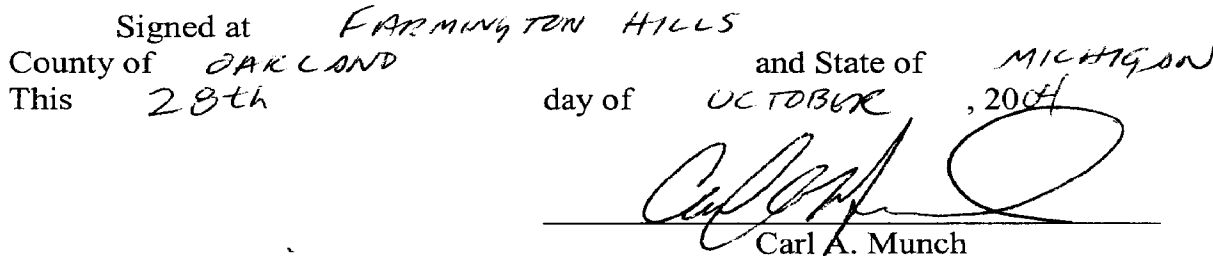 Signed at FARMINGTON HILLS
County of OAKLAND and State of MICHIGAN
This 28th day of OCTOBER , 2004
Carl A. Munch